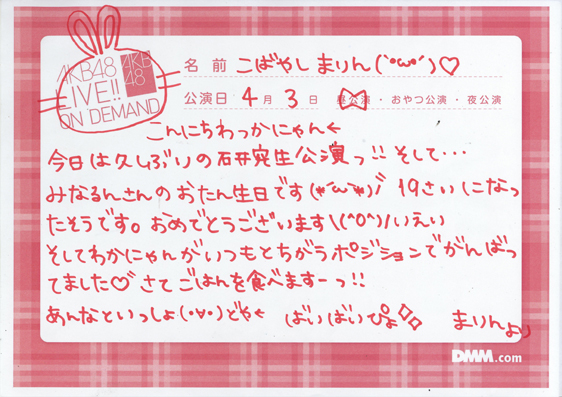 AKB48
LIVE!!
ON DEMAND
AKB
48
名前 こばやしまりん(`・ω・´)♡
公演日 4月3日 昼公演・おやつ公演・夜公演
こんにちわっかにゃん←
今日は久しぶりの研究生公演っ!! そして…
みなるんさんのおたん生日です(*´ω`*)ﾞ 19さいになっ
たそうです。おめでとうございます\(^o^)/いえい
そしてわかにゃんがいつもとちがうポジションでがんばっ
てました♡ さてごはんを食べますーっ!!
あんなといっしょ(・∀・)どや← ばいばいぴよ まりんより
DMM.com